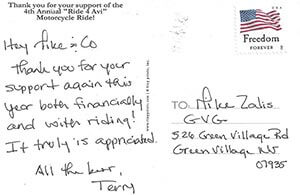 Thank you for your support of the
4th Annual "Ride 4 Avi"
Motorcycle Ride!
Hey Mike & Co
Thank you for your
support again this
year both financially
and with riding!
It truly is appreciated.
All the best,
Terry
Freedom
FOREVER
TO: Mike Zalis
GVG
526 Green Village Rd
Green Village NJ
07935